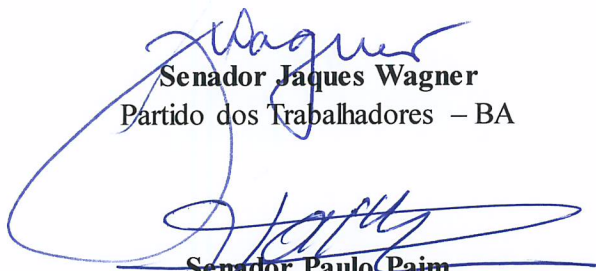 Wagner
Senador Jaques Wagner
Partido dos Trabalhadores – BA
Senador Paulo Paim